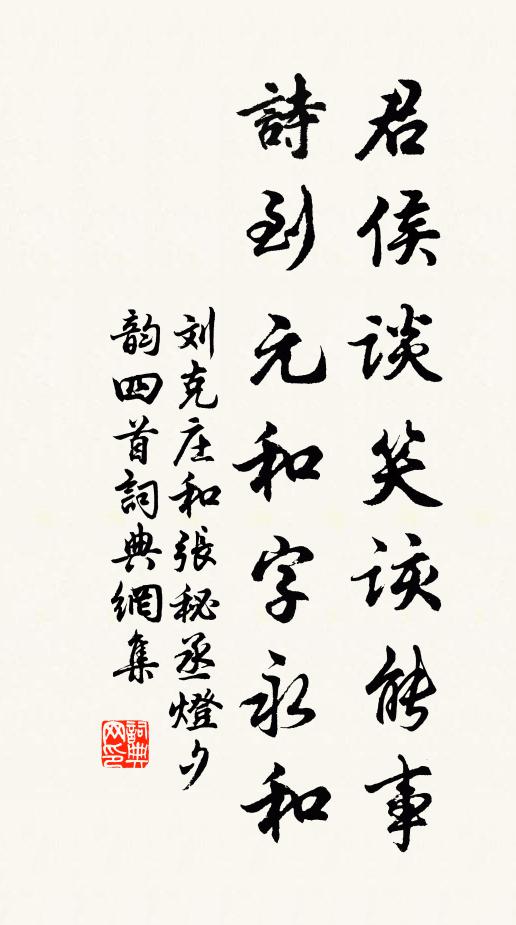 君侯談笑該能事
詩到元和字永和
刘克庄和張秘丞燈夕
韵四首詞典網集
詞典网印